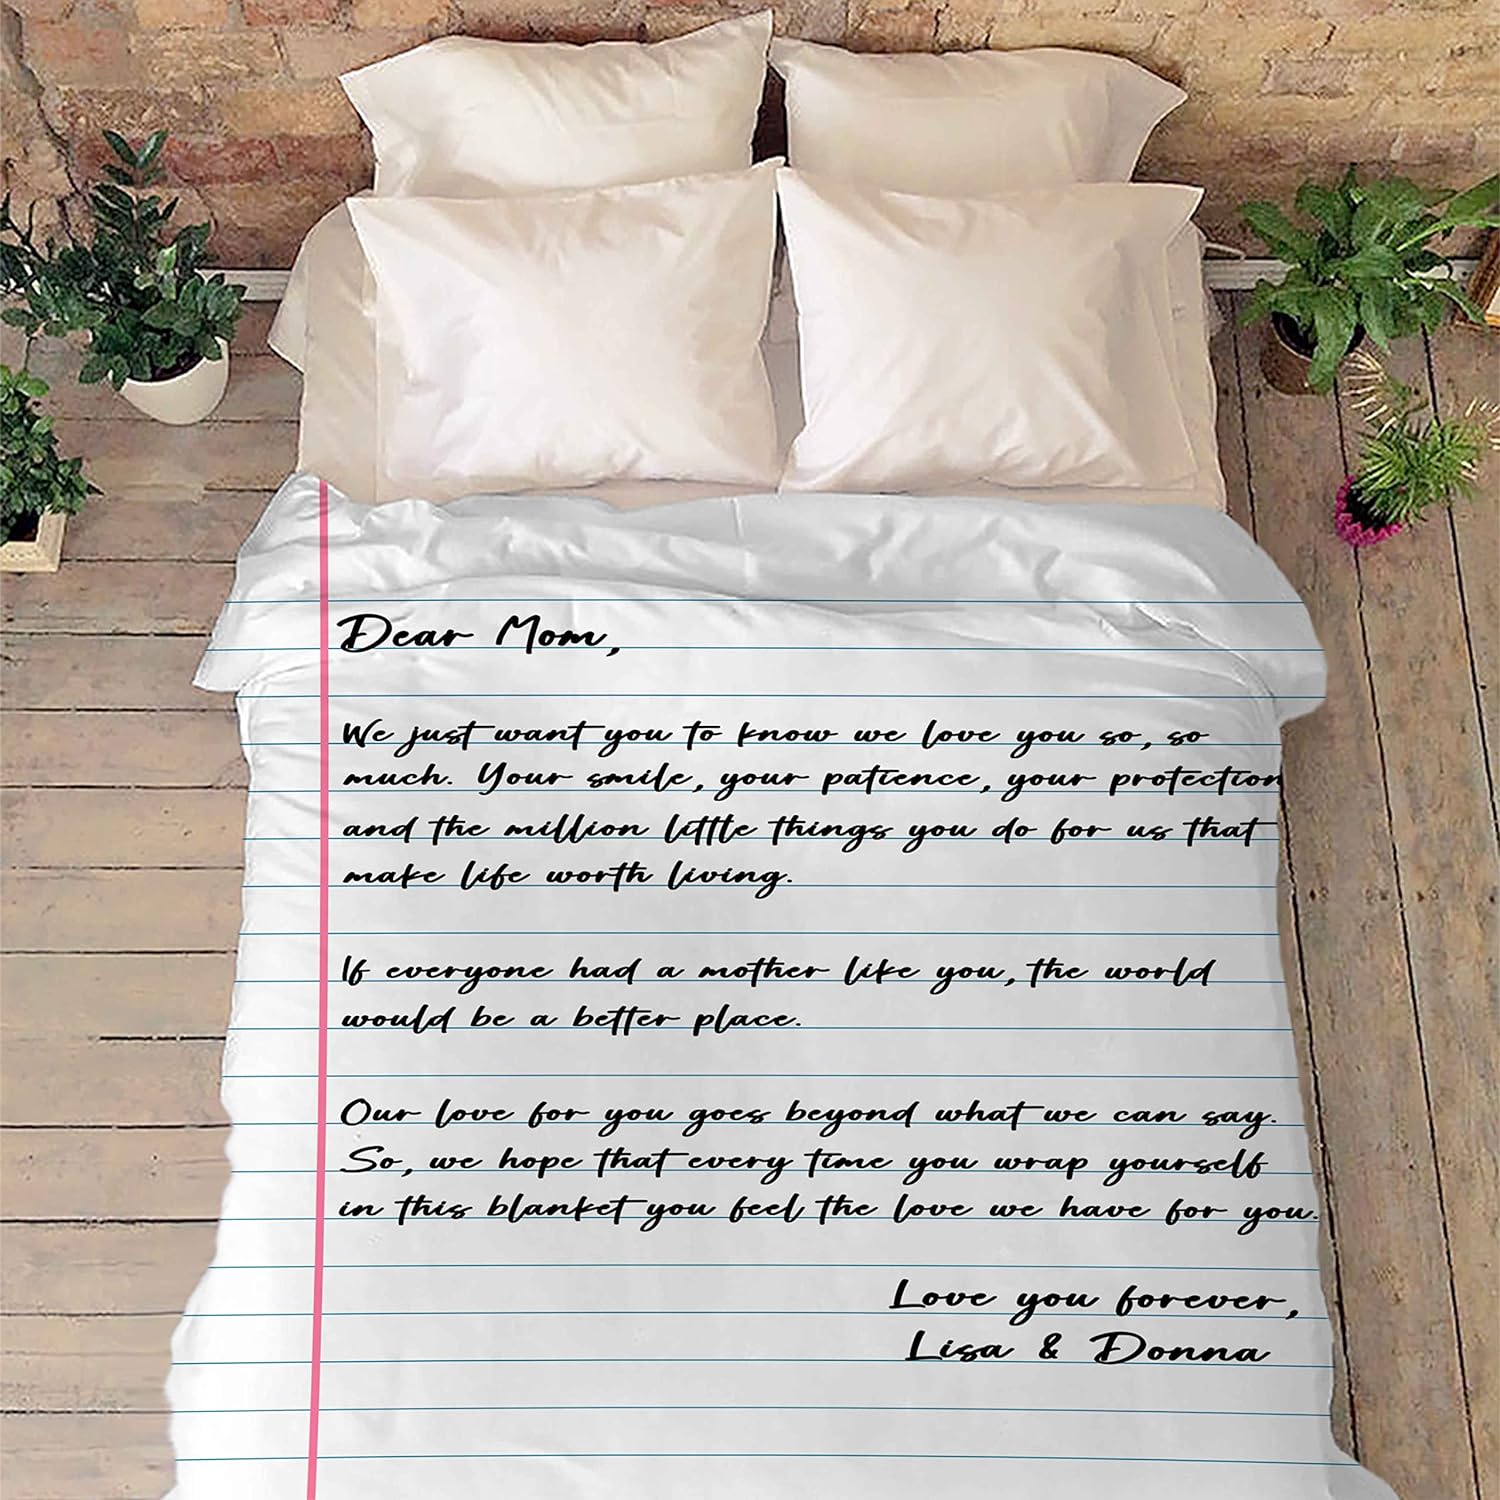 Dear Mom,
We just want you to know we love you so, so
much. Your smile, your patience, your protection
and the million little things you do for us that
make life worth living.
If everyone had a mother like you, the world
would be a better place.
Our love for you goes beyond what we can say.
So, we hope that every time you wrap yourself
in this blanket you feel the love we have for you.
Love you forever,
Lisa & Donna